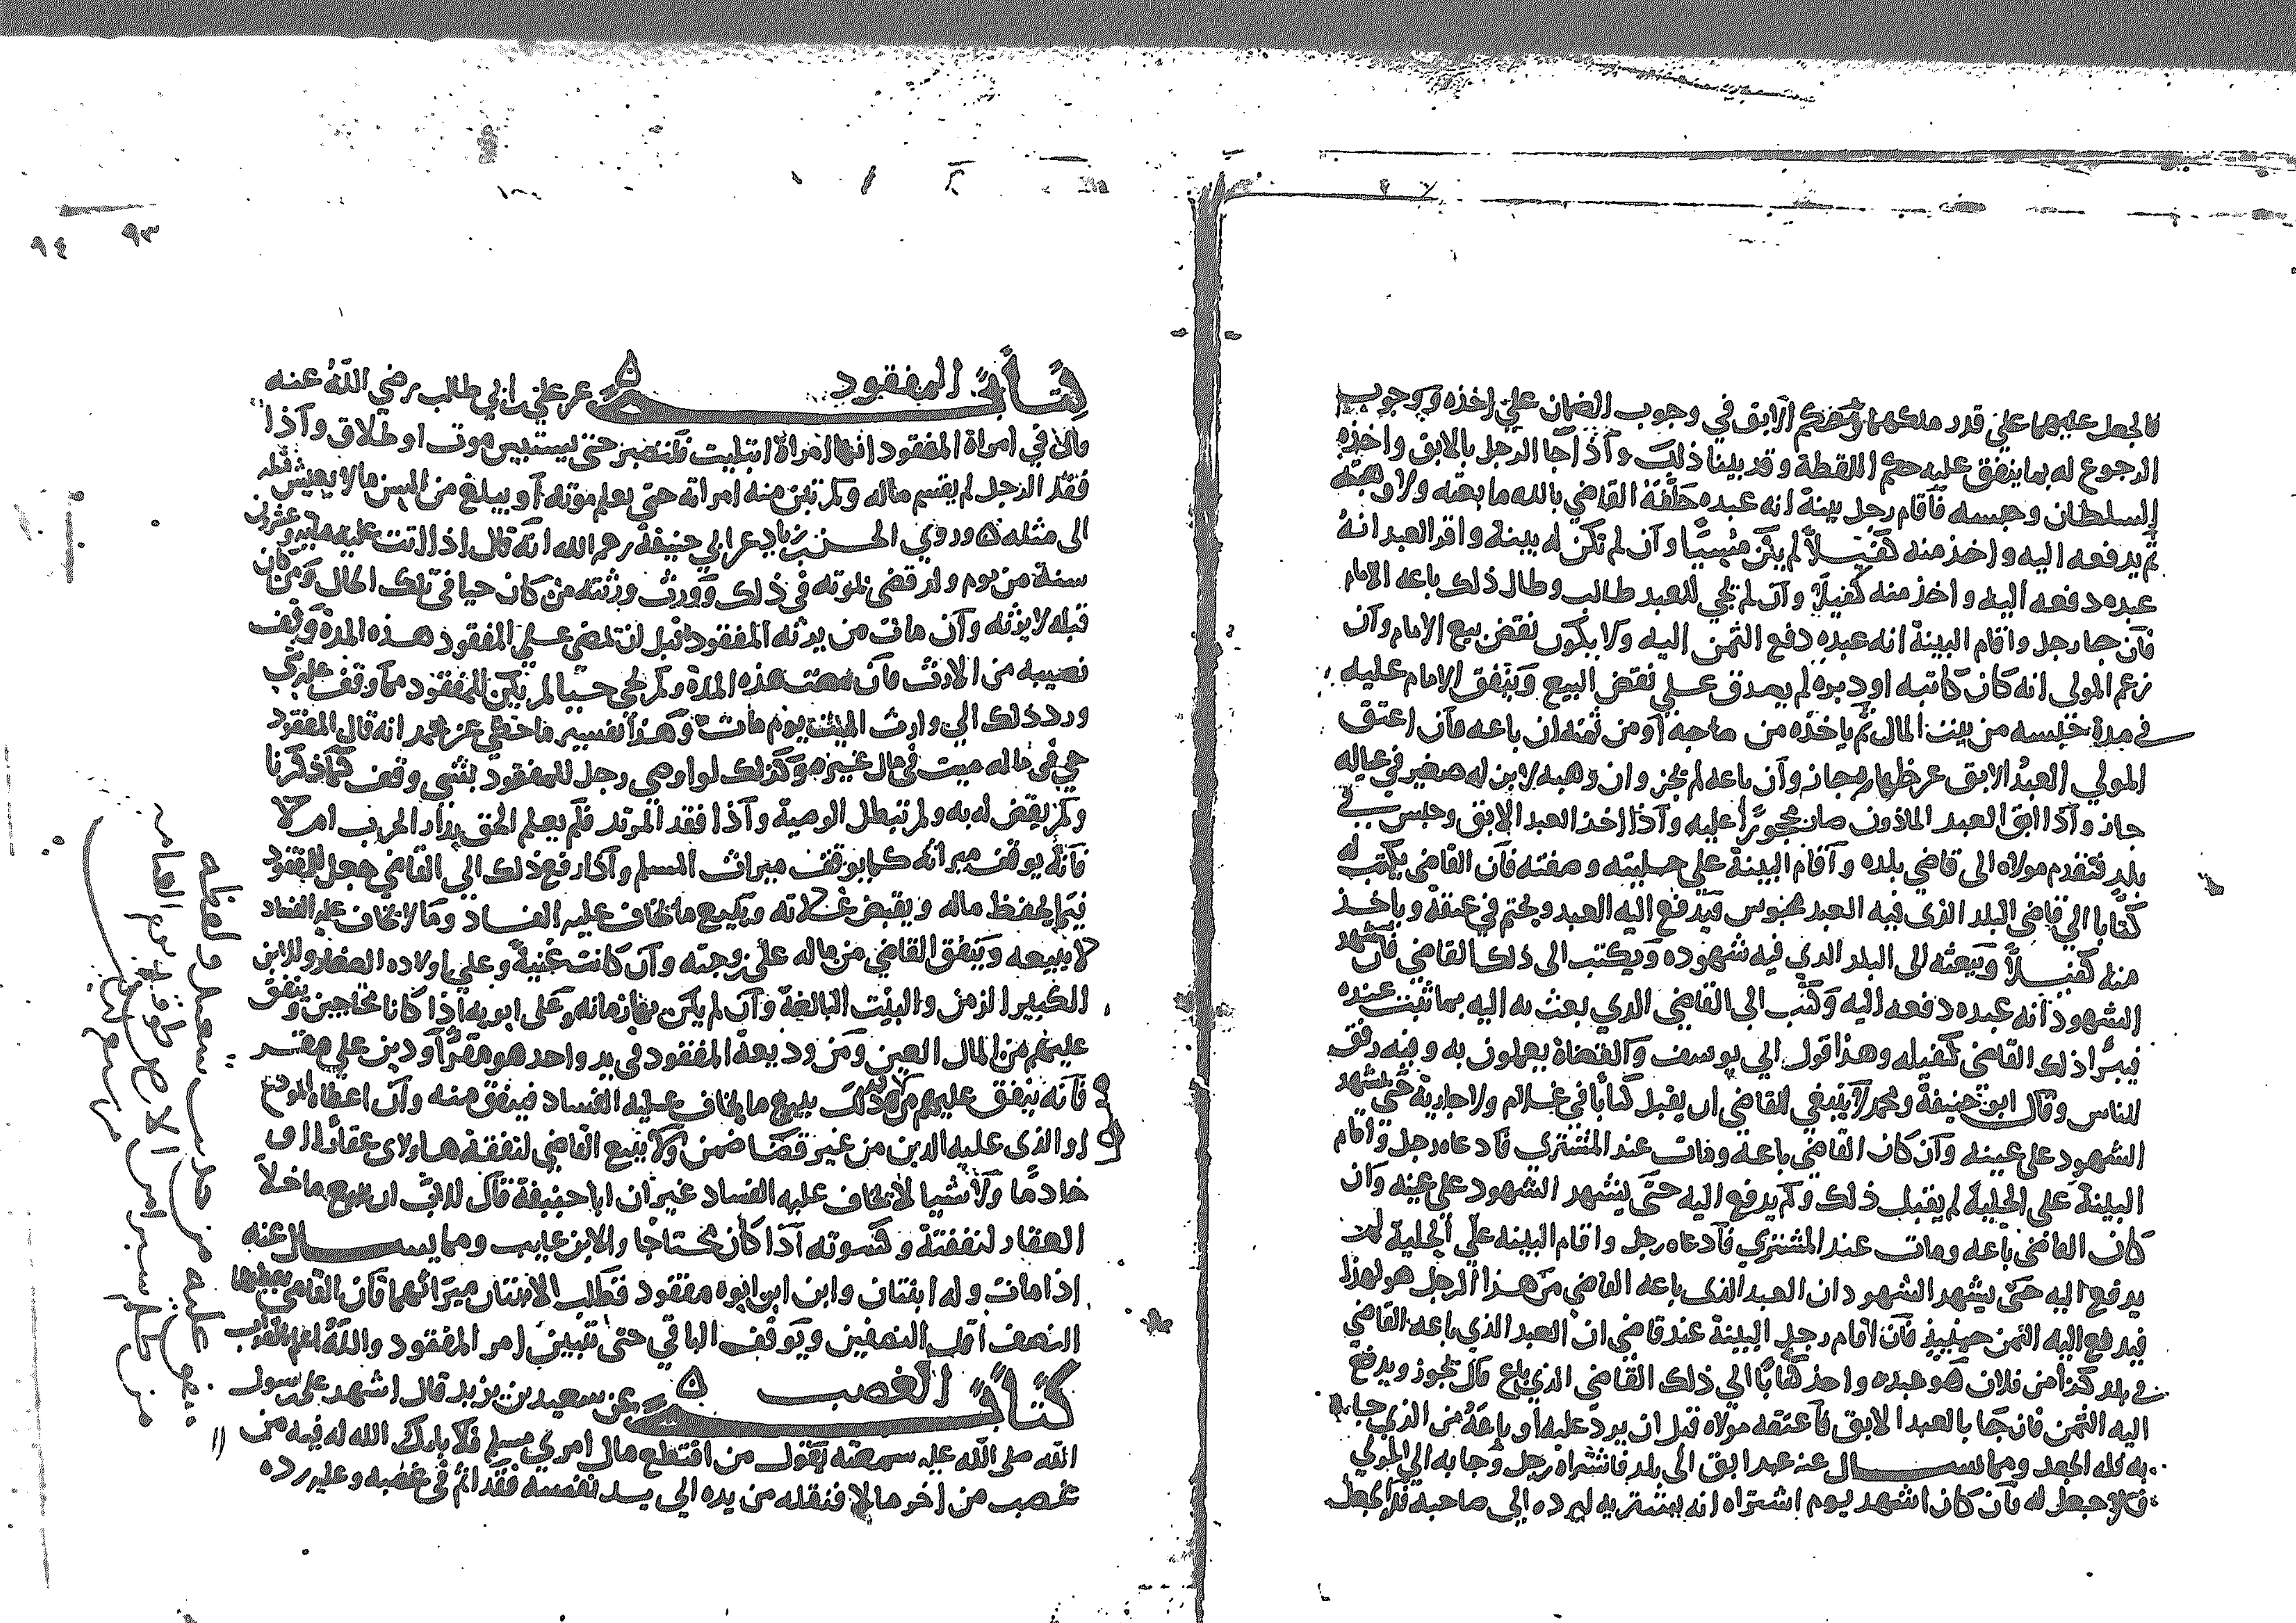 فالجعل عليهما على قدر ملكهما وحكم الابق في وجوب الضمان على اخذه ووجوب
الرجوع له بما ينفق عليه حكم اللقطة وقد بينا ذلك واذا جا الرجل بالابق واخذه
السلطان وحبسه فاقام رجل بينة انه عبده حلفه القاضي بالله ما بعته ولا وهبته
ثم يدفعه اليه واخذ منه كفيلا لم يكن مسيا وان لم تكن له بينة واقر العبد انه
عبده دفعه اليه واخذ منه كفيلا وان لم يجي للعبد طالب وطال ذلك باعه الامام
فان جا رجل واقام البينة انه عبده دفع الثمن اليه ولا يكون نقض بيع الامام وان
زعم المولى انه كان كاتبه او دبره لم يصدق على نقض البيع وينفق الامام عليه
في مدة حبسه من بيت المال ثم ياخذه من صاحبه او من ثمنه ان باعه فان اعتق
المولى العبد الابق عن ظهاره جاز وان باعه لم يجز وان وهبه لابن له صغير في عياله
جاز واذا ابق العبد الماذون صار محجورا عليه واذا اخذ العبد الابق وحبس في
بلد فتقدم مولاه الى قاضي بلده واقام البينة على حليته وصفته فان القاضي يكتب له
كتابا الى قاضي البلد الذي فيه العبد محبوس فيدفع اليه العبد ويختم في عنقه وياخذ
منه كفيلا ويبعثه الى البلد الذي فيه شهوده ويكتب الى ذلك القاضي فان شهد
الشهود انه عبده دفعه اليه وكتب الى القاضي الذي بعث به اليه بما ثبت عنده
فيبرا ذلك القاضي كفيله وهذا قول ابي يوسف والقضاة يعملون به وفيه رفق
للناس وقال ابو حنيفة ومحمد لا ينبغي للقاضي ان يقبل كتابا في غلام ولا جارية حتى يشهد
الشهود على عينه وان كان القاضي باعه ومات عند المشتري فادعاه رجل واقام
البينة على الحلية لم يقبل ذلك ولم يدفع اليه حتى يشهد الشهود على عينه وان
كان القاضي باعه ومات عند المشتري فادعاه رجل واقام البينه على الحلية لم
يدفع اليه حتى يشهد الشهود ان العبد الذي باعه القاضي من هذا الرجل هو لهذا
فيدفع اليه الثمن حينيذ فان اقام رجل البينة عند قاضي ان العبد الذي باعه القاضي
في بلد كذا من فلان هو عبده واخذ كتابا الى ذلك القاضي الذي باع قال يجوز ويدفع
اليه الثمن فان جا بالعبد الابق فاعتقه مولاه قبل ان يرد عليه او باعه من الذي جا
به فله الجعل ومما يسال عنه عبد ابق الى بلد فاشتراه رجل وجا به الى المولي
فلا جعل له فان كان اشهد يوم اشتراه انه يشتريه ليرده الى صاحبه فله الجعل
٩٣
٩٤
كتاب المفقود ه عن علي بن ابي طالب رضي الله عنه
قال في امراة المفقود انها امراة ابتليت فلتصبر حتى يستبين موت او طلاق واذا
فقد الرجل لم يقسم ماله ولم تبن منه امراته حتى يعلم موته او يبلغ من السن ما لا يعيش مثله
الى مثله ه وروي الحسن بن زياد عن ابي حنيفة رحمه الله انه قال اذا اتت عليه ماية وعشرون
سنة من يوم ولد قضى بموته في ذلك وورث ورثته من كان حيا في تلك الحال ومن كان
قبله لا يرثه وان مات من يرثه المفقود قبل ان تمضي على المفقود هذه المدة وقف
نصيبه من الارث فان مضت هذه المدة ولم يجي حيا لم يكن للمفقود مما وقف شي
ورد ذلك الي وارث الميت يوم مات وهذا تفسير ما حكي عن محمد انه قال المفقود
حي في ماله ميت في مال غيره وكذلك لو اوصي رجل للمفقود بشي وقف كما ذكرنا
ولم يقض له به ولم تبطل الوصية واذا فقد المرتد فلم يعلم الحق بدار الحرب ام لا
فانه يوقف ميراثه كما يوقف ميراث المسلم واذا رفع ذلك الى القاضي جعل للمفقود
قيما يحفظ ماله ويقبض غلاته ويبيع ما يخاف عليه الفساد وما لا يخاف عليه الفساد
لا يبيعه وينفق القاضي من ماله على زوجته وان كانت غنية وعلى اولاده الصغار والابن
الكبير الزمن والبنت البالغة وان لم يكن بها زمانه وعلى ابويه اذا كانا محتاجين وينفق
عليهم من المال العين ومن وديعة المفقود في يد واحد هو مقر او دين على مقر
فانه ينفق عليهم من ذلك يبيع ما يخاف عليه الفساد فينفق منه وان اعطاه المودع
او الذي عليه الدين من غير قضا ضمن ولا يبيع القاضي لنفقة هاولاى عقارا او
خادما ولا شيا لا يخاف عليه الفساد غير ان ابا حنيفة قال للاب ان يبيع ما خلا
العقار لنفقته وكسوته اذا كان محتاجا والابن غايب ومما يسال عنه
اذا مات وله ابنتان وابن ابن ابوه مفقود فطلب الابنتان ميراثهما فان القاضي يعطيهما
النصف اقل النصفين ويوقف الباقي حتى تتبين امر المفقود والله اعلم بالصواب
كتاب الغصب ه عن سعيد بن يزيد قال اشهد على رسول
الله صلى الله عليه سمعته يقول من اقتطع مال امري مسلم فلا بارك الله له فيه من
غصب من اخر مالا فنقله من يده الي يد نفسه فقد اثم في غصبه وعليه رده